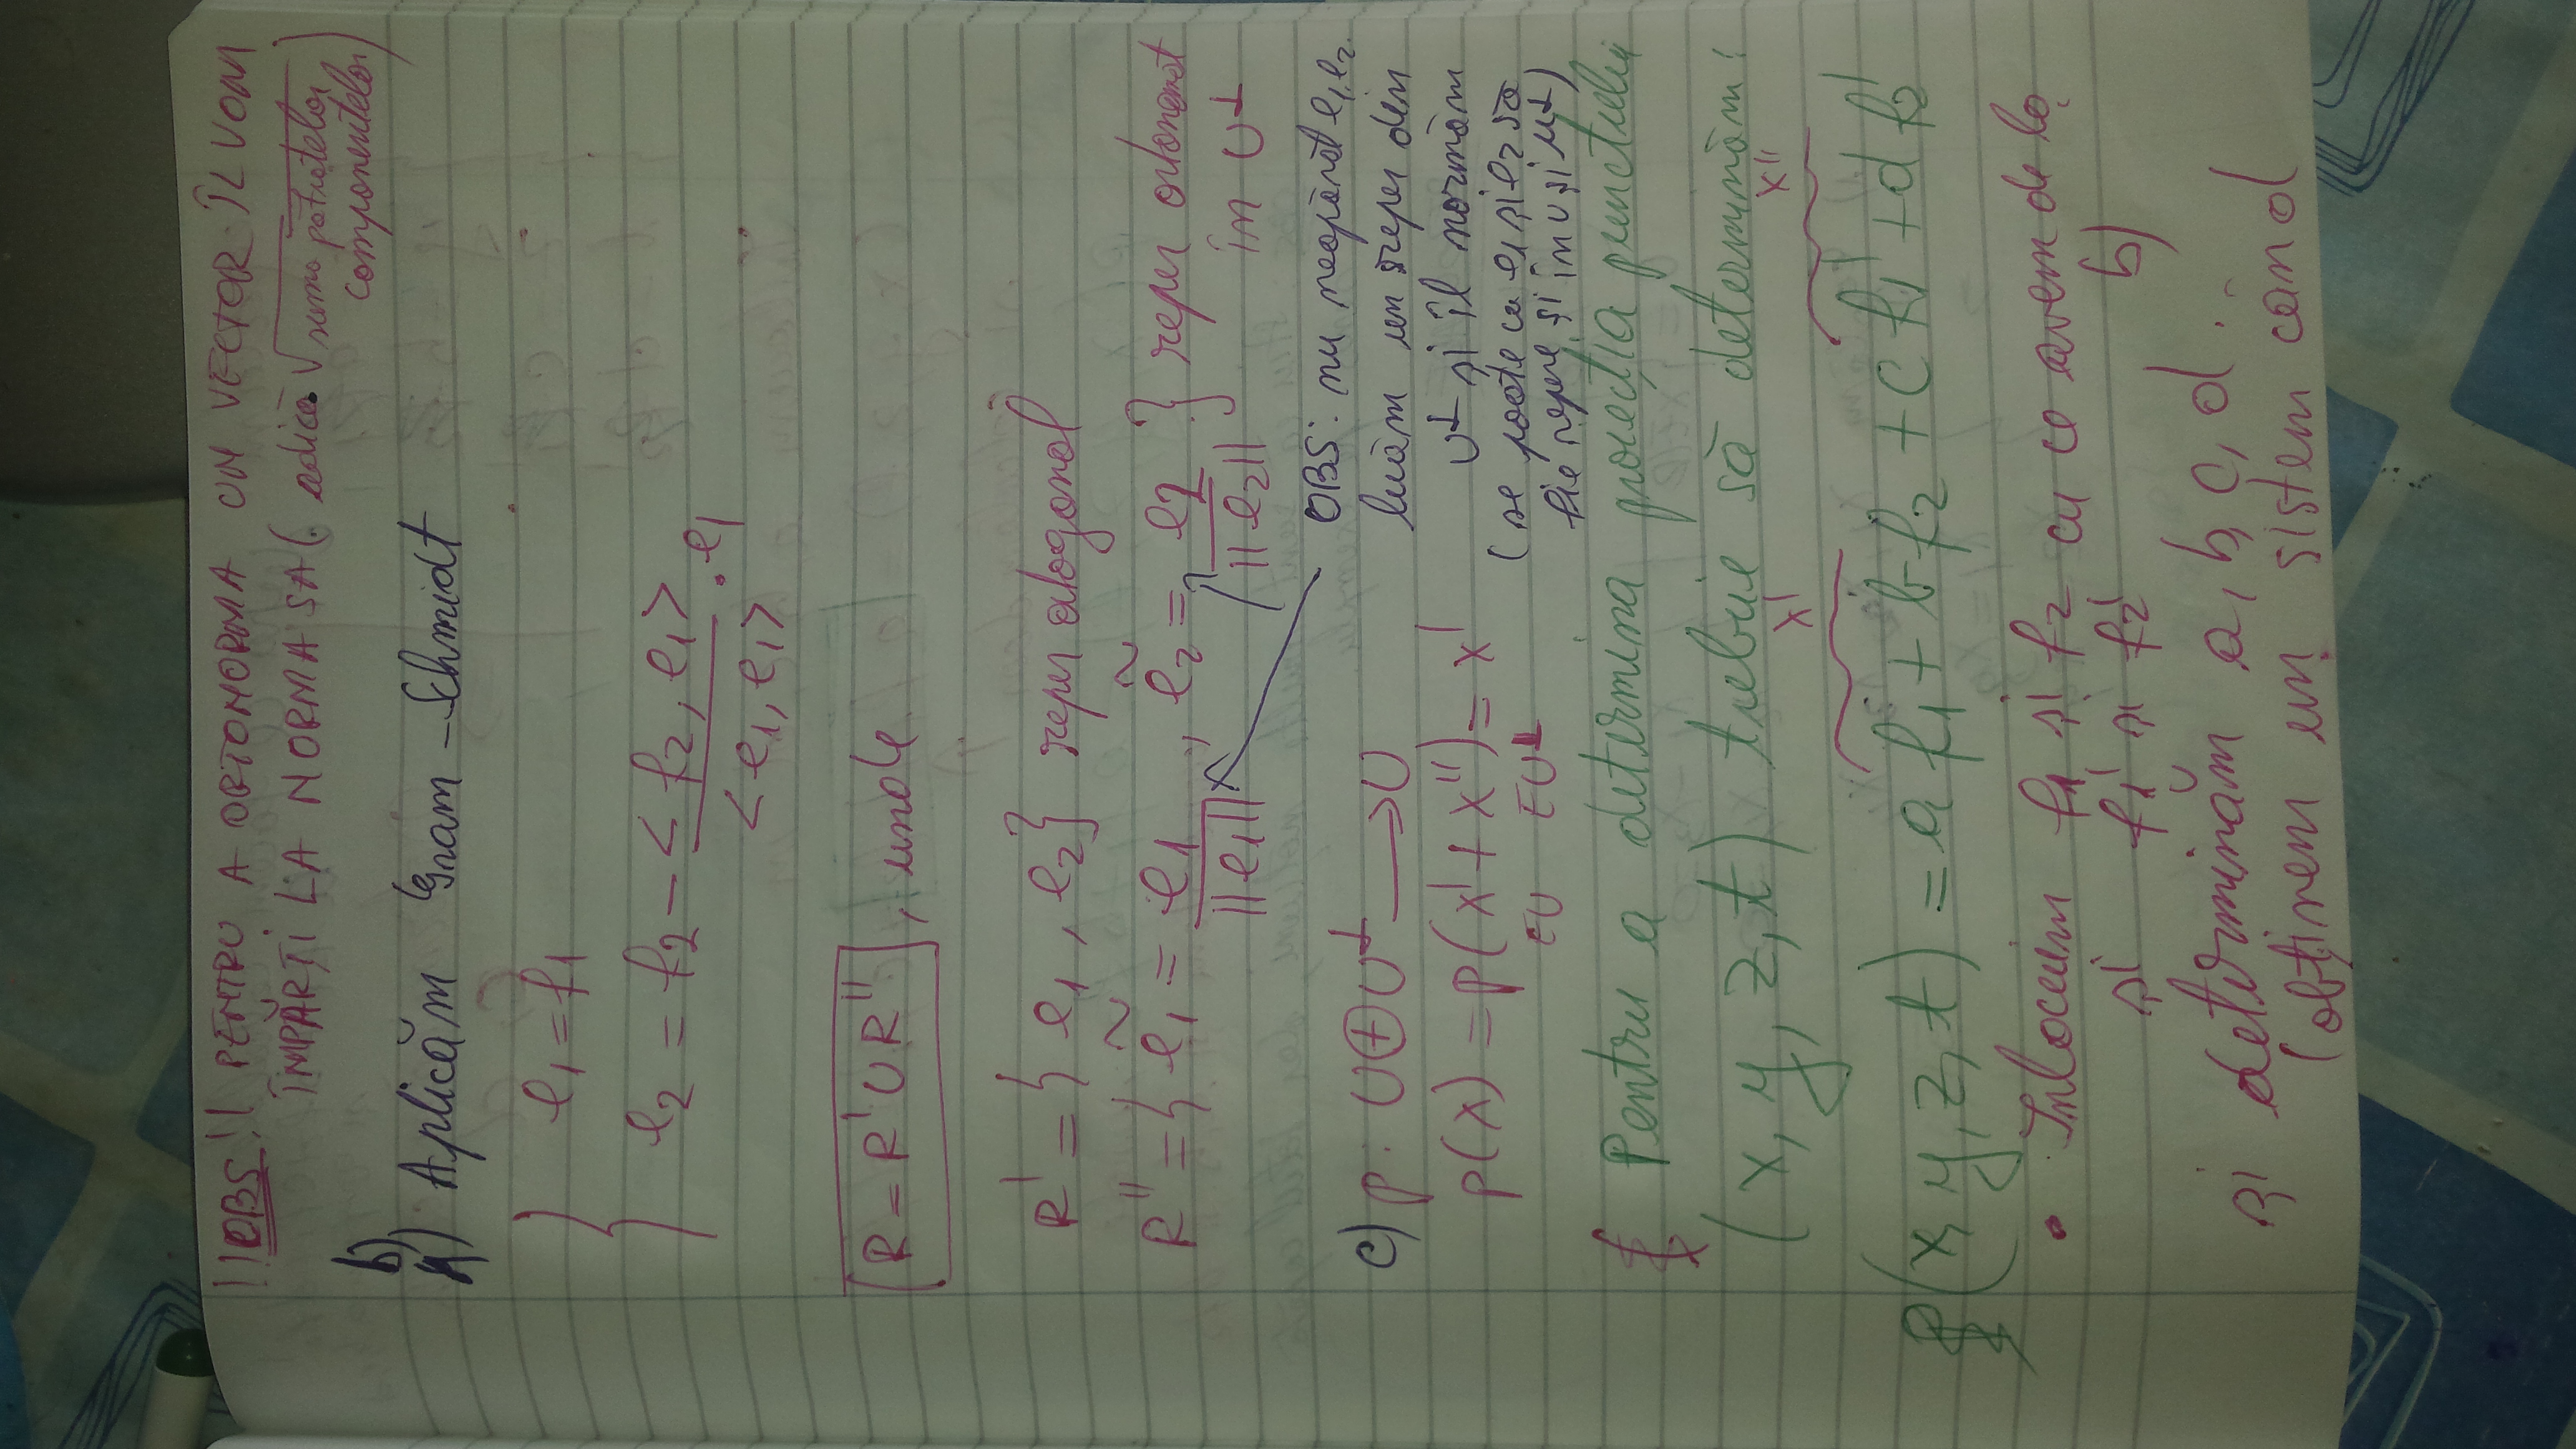 !!OBS!! PENTRU A ORTONORMA UN VECTOR ÎL VOM
ÎMPĂRȚI LA NORMA SA (adică √suma pătratelor
componentelor)
b)
Aplicăm Gram-Schmidt
{ e₁ = f₁
e₂ = f₂ - <f₂, e₁> / <e₁, e₁> · e₁
R = R' ∪ R'', unde
R' = { e₁, e₂ } reper otogonal
R'' = { ẽ₁ = e₁ / ||e₁||, ẽ₂ = e₂ / ||e₂|| } reper ortonormat
în U⊥
OBS: nu neapărat e₁, e₂.
luăm un reper din
U⊥ și îl normăm
(se poate ca e₁ și e₂ să
fie repere și în U și U⊥)
c) p: U ⊕ U⊥ → U
p(x) = p(x' + x'') = x'
∈U ∈U⊥
Pentru a determina proiecția punctului
(x, y, z, t) trebuie să determinăm:
x' x''
(x, y, z, t) = a f₁ + b f₂ + c f₁' + d f₂'
• Înlocuim f₁ și f₂ cu ce avem de la
și f₁' și f₂' b)
și determinăm a, b, c, d.
(obținem un sistem când